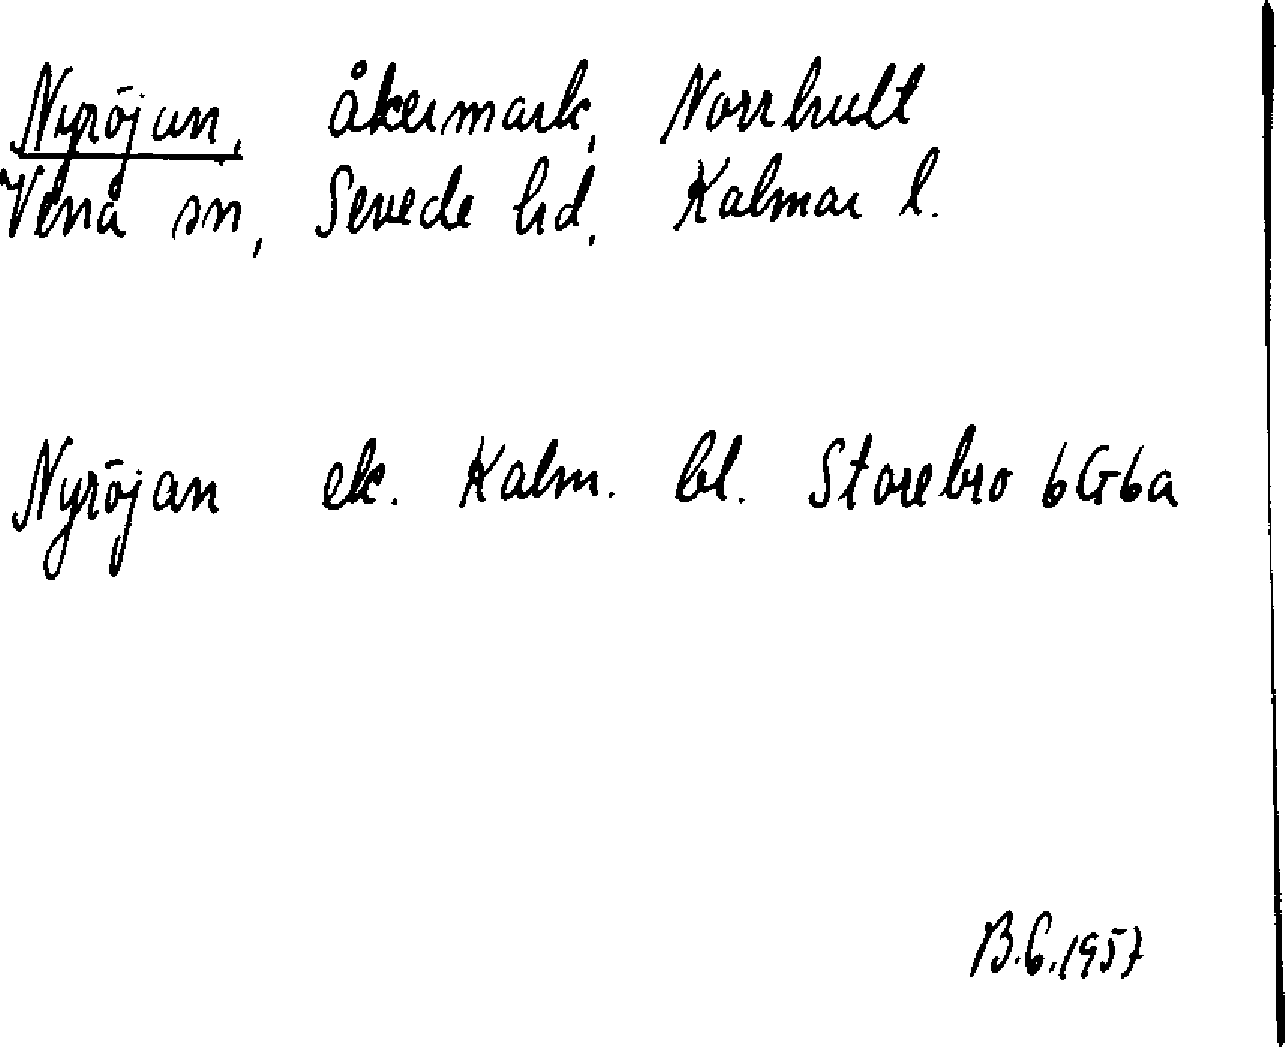 Nyröjan, åkermark, Norrhult
Vena sn, Sevede hd, Kalmar l.
Nyröjan ek. Kalm. bl. Storebro 6G6a
B.G. 1957